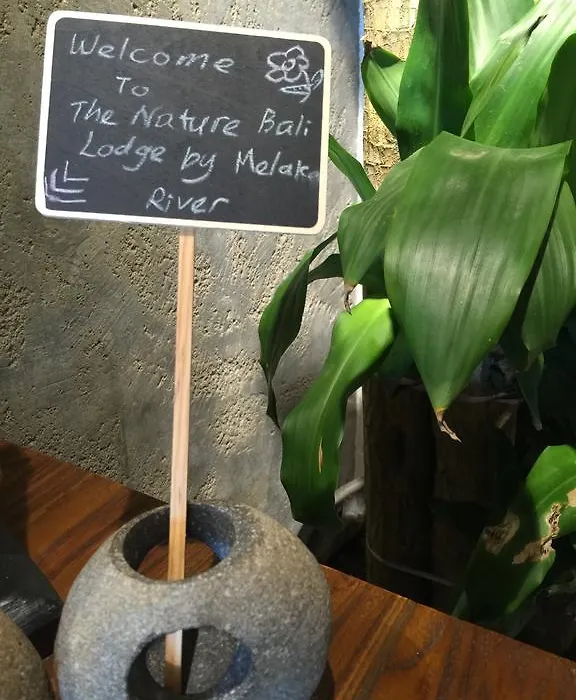 Welcome
To
The Nature Bali
Lodge by Melaka
River